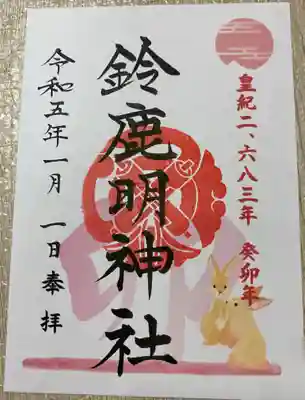 皇紀二、六八三年 癸卯年
鈴鹿明神社
令和五年一月 一日奉拝